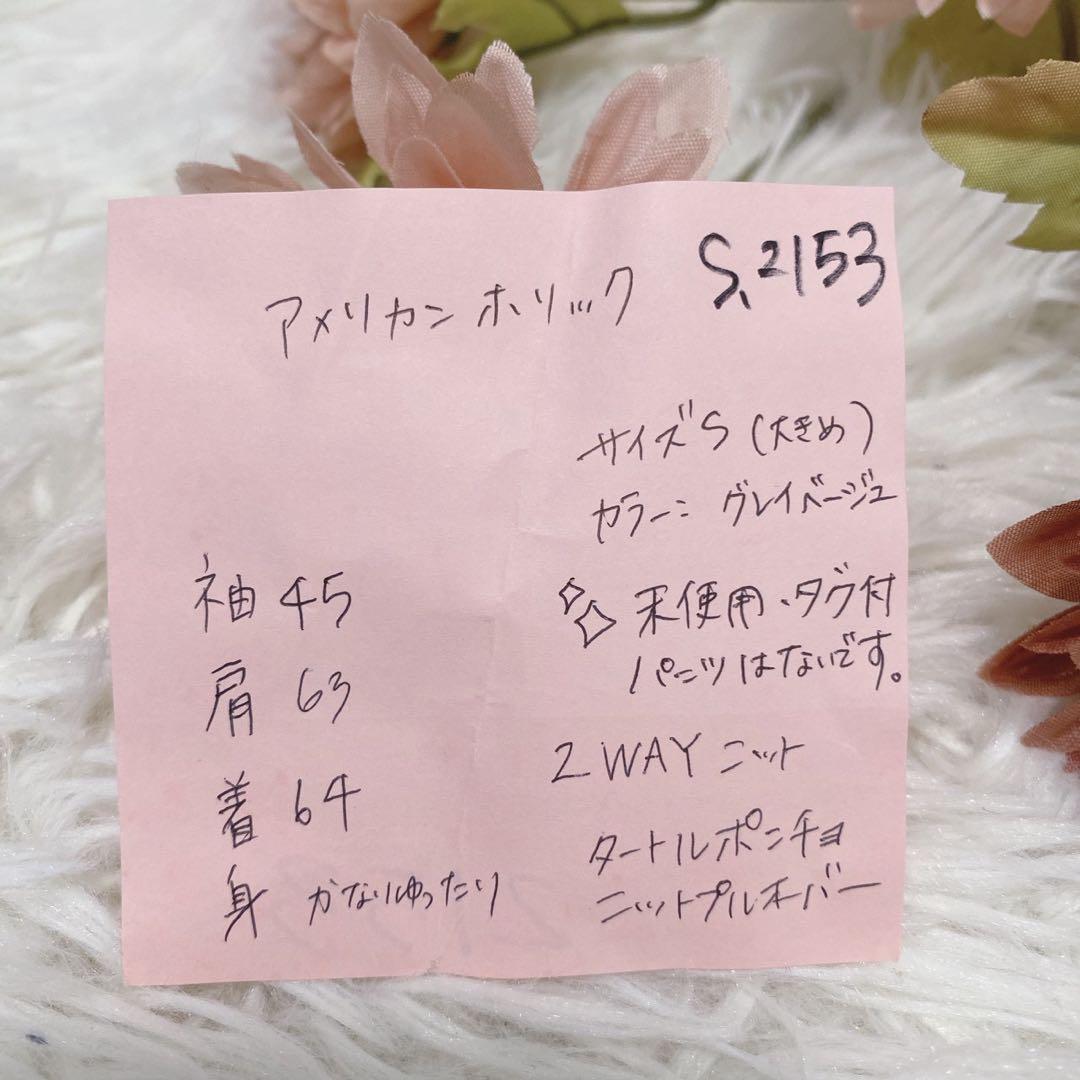 アメリカンホリック S.2153
サイズS (大きめ)
カラー: グレイベージュ
袖 45
肩 63
着 64
身 かなりゆったり
未使用、タグ付
パンツはないです。
2WAYニット
タートルポンチョ
ニットプルオーバー